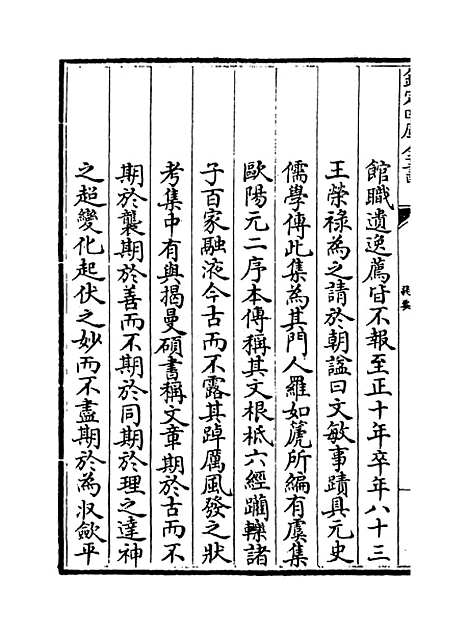 欽定四庫全書
提要
館職遺逸薦皆不報至正十年卒年八十三
王榮祿為之請於朝諡曰文敏事蹟具元史
儒學傳此集為其門人羅如篪所編有虞集
歐陽元二序本傳稱其文根柢六經躪轢諸
子百家融液今古而不露其踔厲風發之狀
考集中有與揭曼碩書稱文章期於古而不
期於襲期於善而不期於同期於理之達神
之超變化起伏之妙而不盡期於為収歛平